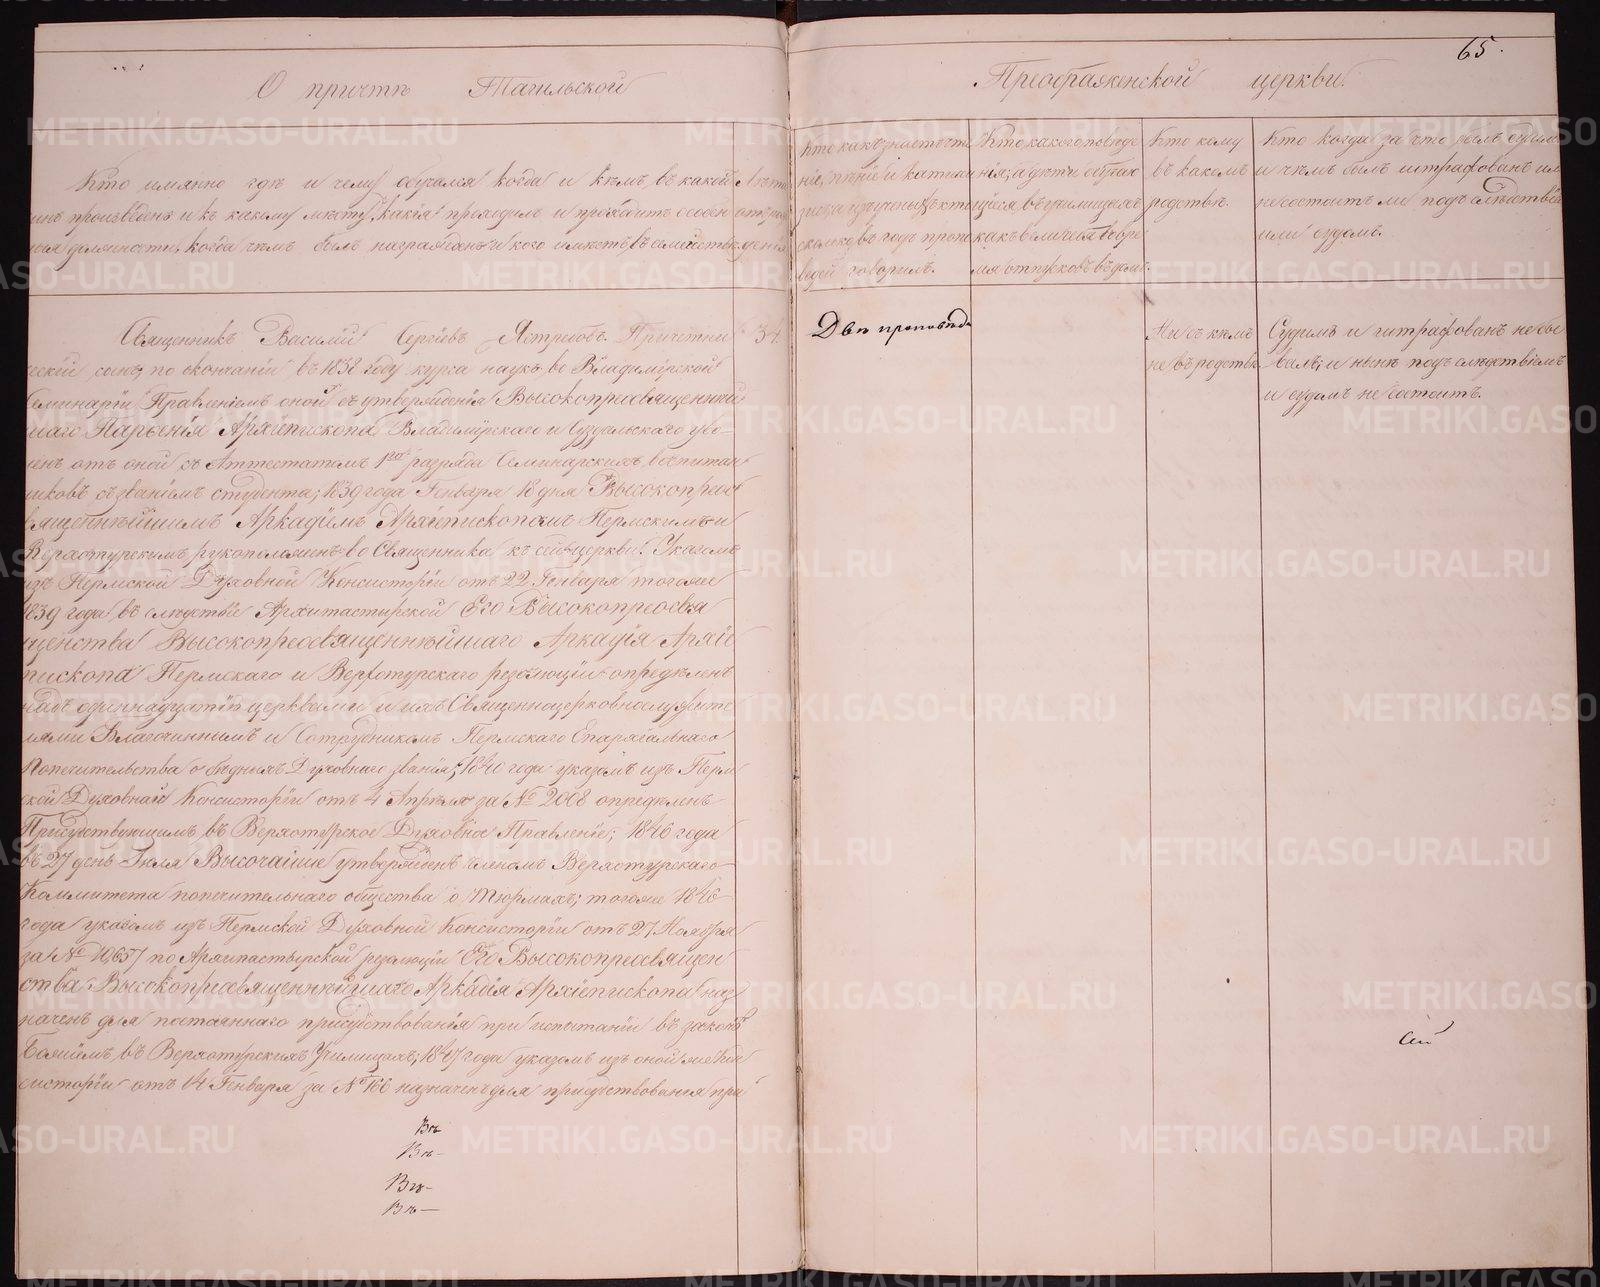 65.
О причтѣ Тагильской Преображенской церкви.
Кто имянно гдѣ и чему обучался когда и кѣмъ, въ какой
чинъ произведенъ и къ какому мѣсту, какія проходилъ и проходитъ особен
ныя должности, когда, чѣмъ былъ награжденъ и кого имѣетъ въ семействѣ
Лѣта
отъ рож
денія
Кто какъ знаетъ чте
ніе, пѣніе и катихи
зисъ а изъ ученыхъ кто
сколько въ годъ пропо
ведей говорилъ.
Кто какого поведе
нія; а дѣти обучаю
щіеся въ училищахъ
какъ вели себя во вре
мя отпусковъ въ домы.
Кто кому
въ какомъ
родствѣ.
Кто когда за что былъ судимъ
и чѣмъ былъ штрафованъ или
не состоитъ ли подъ слѣдствіемъ
или судомъ.
Священникъ Василій Сергіевъ Ястребовъ. Причетни
ческій сынъ, по окончаніи въ 1838 году курса наукъ во Владимірской
Семинаріи Правленіемъ оной съ утвержденія Высокопреосвященнѣй
шаго Парѳенія Архіепископа Владимірскаго и Суздальскаго уво-
ленъ отъ оной съ Аттестатомъ 1го разряда Семинарскихъ воспитан
никовъ съ званіемъ студента; 1839 года Генваря 18 дня Высокопреос
вященнѣйшимъ Аркадіемъ Архіепископомъ Пермскимъ и
Верхотурскимъ рукоположенъ во Священника къ сей церкви. Указомъ
изъ Пермской Духовной Консисторіи отъ 22 Генваря тогоже
1839 года въ слѣдствіе Архипастырской Его Высокопреосвя
щенства Высокопреосвященнѣйшаго Аркадія Архіе
пископа Пермскаго и Верхотурскаго резолюціи опредѣленъ
надъ одиннадцатью церквами и ихъ Священноцерковнослужите
лями Благочиннымъ и Сотрудникомъ Пермскаго Епархіальнаго
Попечительства о бѣдныхъ Духовнаго званія; 1840 года указомъ изъ Перм
ской Духовной Консисторіи отъ 4 Апрѣля за № 2008 опредѣленъ
Присутствующимъ въ Верхотурское Духовное Правленіе; 1846 года
въ 27 день Іюля Высочайше утвержденъ членомъ Верхотурскаго
Коммитета попечительнаго общества о тюрмахъ; тогоже 1846
года указомъ изъ Пермской Духовной Консисторіи отъ 27 Ноября
за № 10,657 по Архипастырской резолюціи Его Высокопреосвящен
ства Высокопреосвященнѣйшаго Аркадія Архіепископа наз
наченъ для постояннаго присутствованія при испытаніи въ законѣ
Божіемъ въ Верхотурскихъ Училищахъ; 1847 года указомъ изъ оной же Кон
систоріи отъ 14 Генваря за № 166 назначенъ для присутствованія при
34.
Двѣ проповѣди
Ни съ кѣмъ
не въ родствѣ.
Судимъ и штрафованъ не бы
валъ, и нынѣ подъ слѣдствіемъ
и судомъ не состоитъ.